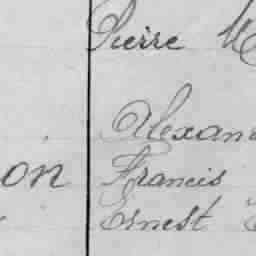 Pierre
Alexan
on Francis
Ernest